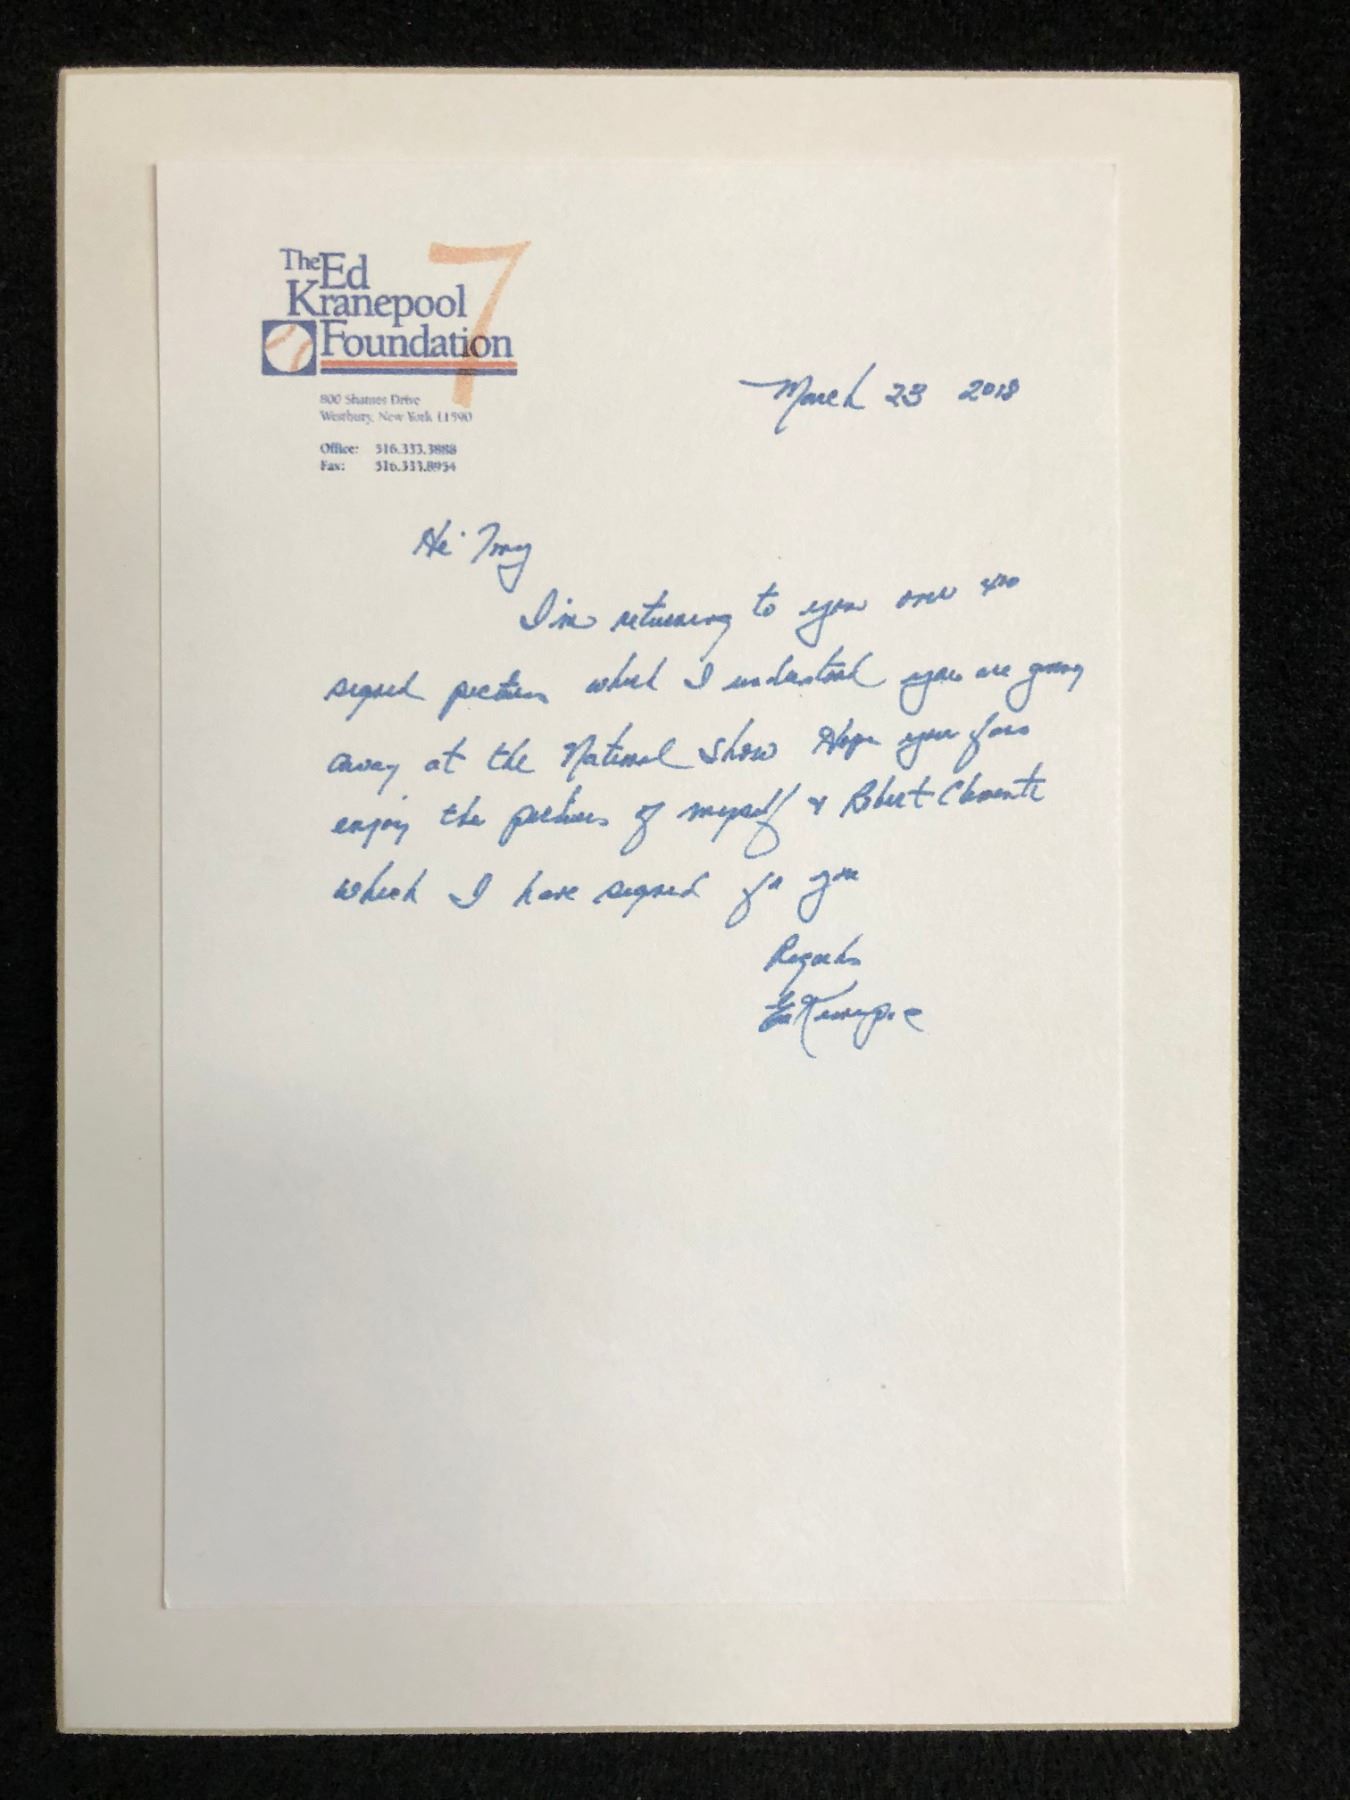 The Ed
Kranepool
Foundation
7
800 Shames Drive
Westbury, New York 11590
Office: 516.333.3888
Fax: 516.333.8954
March 23 2018
Hi
I'm returning to you over
signed pictures which I understood you are giving
away at the National Show Hope your fans
enjoy the pictures of myself & Robert Clemente
which I have signed for you
Regards
Ed Kranepool